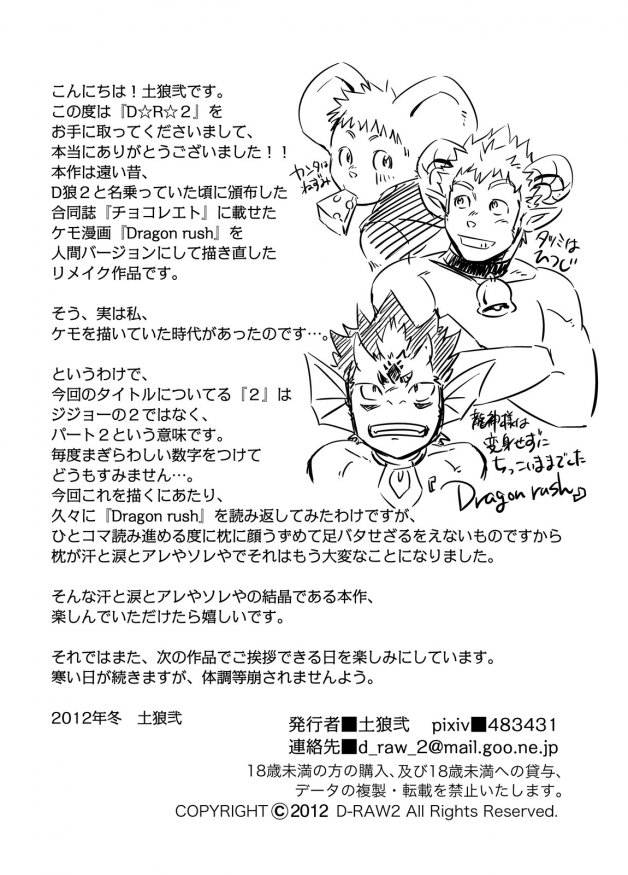 こんにちは！土狼弐です。
この度は『D☆R☆２』を
お手に取ってくださいまして、
本当にありがとうございました！！
本作は遠い昔、
D狼２と名乗っていた頃に頒布した
合同誌『チョコレエト』に載せた
ケモ漫画『Dragon rush』を
人間バージョンにして描き直した
リメイク作品です。
そう、実は私、
ケモを描いていた時代があったのです…。
というわけで、
今回のタイトルについてる『２』は
ジジョーの２ではなく、
パート２という意味です。
毎度まぎらわしい数字をつけて
どうもすみません…。
今回これを描くにあたり、
久々に『Dragon rush』を読み返してみたわけですが、
ひとコマ読み進める度に枕に顔うずめて足バタせざるをえないものですから
枕が汗と涙とアレやソレやでそれはもう大変なことになりました。
そんな汗と涙とアレやソレやの結晶である本作、
楽しんでいただけたら嬉しいです。
それではまた、次の作品でご挨拶できる日を楽しみにしています。
寒い日が続きますが、体調等崩されませんよう。
2012年冬　土狼弐
カンタは
ねずみ
タツミは
ひつじ
龍神様は
変身せずに
ちっこいままでした
『Dragon rush』
発行者■土狼弐　pixiv■483431
連絡先■d_raw_2@mail.goo.ne.jp
18歳未満の方の購入、及び18歳未満への貸与、
データの複製・転載を禁止いたします。
COPYRIGHT Ⓒ2012 D-RAW2 All Rights Reserved.